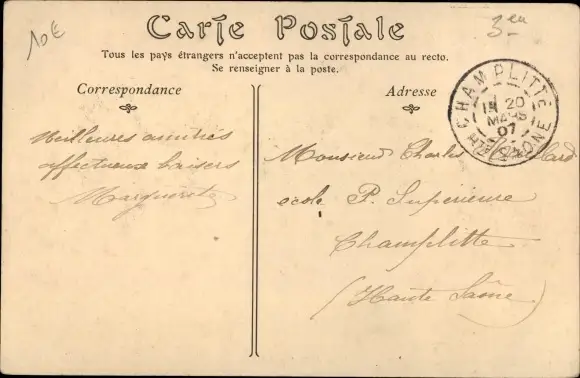 10€
Carte Postale
Tous les pays étrangers n'acceptent pas la correspondance au recto.
Se renseigner à la poste.
Correspondance
Adresse
CHAMPLITTE
20
MARS
07
HTE SAONE
Meilleures amitiés
affectueux baisers
Marguerite
Monsieur Charles
école P. Supérieure
Champlitte
(Haute Saône)